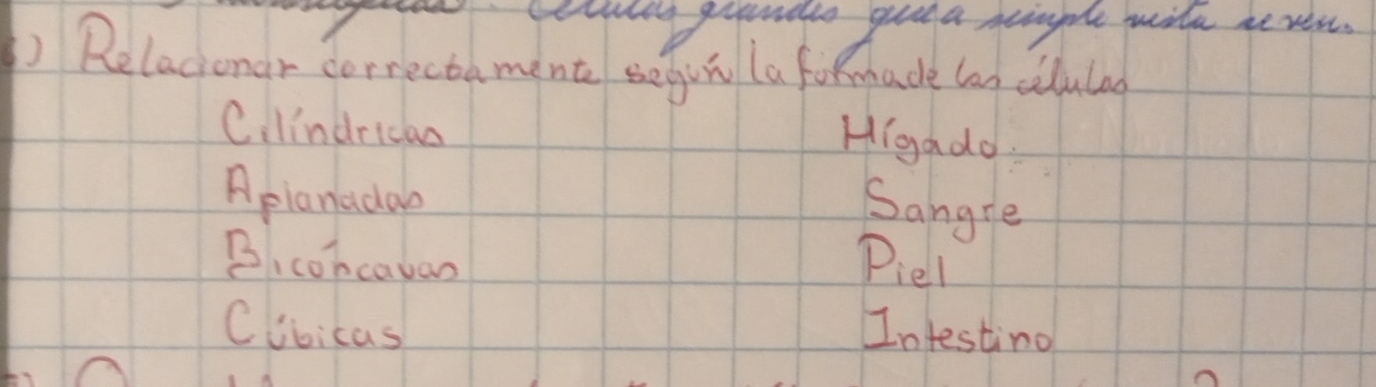 Células grandes que a simple vista se ven.
6) Relacionar correctamente según la forma de las células
Cilíndricas Hígado
Aplanadas Sangre
Bicóncavas Piel
Cúbicas Intestino